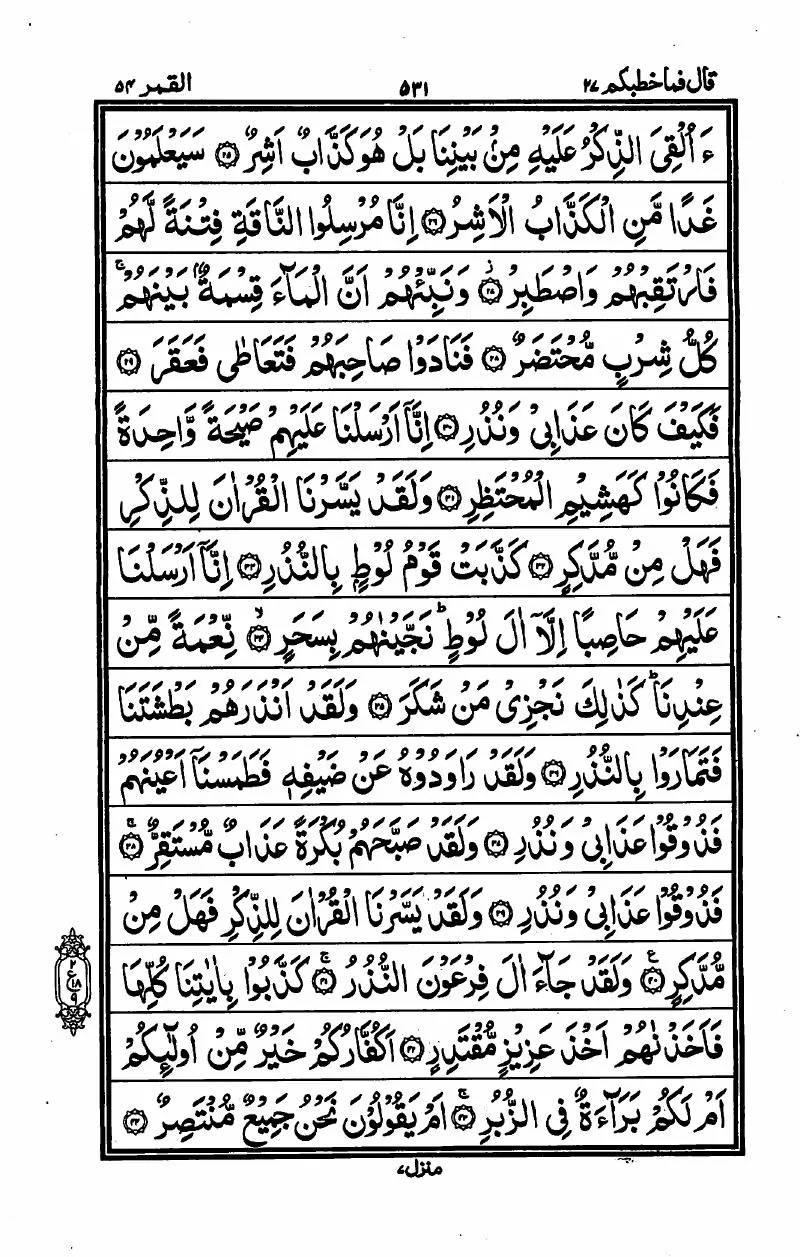 قال فما خطبكم ٢٧ ٥٣١ القمر ٥٤
ءَ اُلْقِیَ الذِّكْرُ عَلَیْهِ مِنْۢ بَیْنِنَا بَلْ هُوَ كَذَّابٌ اَشِرٌ ۝۲۵ سَیَعْلَمُوْنَ
غَدًا مَّنِ الْكَذَّابُ الْاَشِرُ ۝۲۶ اِنَّا مُرْسِلُوا النَّاقَةِ فِتْنَةً لَّهُمْ
فَارْتَقِبْهُمْ وَاصْطَبِرْ ۝۲۷ وَنَبِّئْهُمْ اَنَّ الْمَآءَ قِسْمَةٌۢ بَیْنَهُمْ ۚ
كُلُّ شِرْبٍ مُّحْتَضَرٌ ۝۲۸ فَنَادَوْا صَاحِبَهُمْ فَتَعَاطٰی فَعَقَرَ ۝۲۹
فَكَیْفَ كَانَ عَذَابِیْ وَنُذُرِ ۝۳۰ اِنَّاۤ اَرْسَلْنَا عَلَیْهِمْ صَیْحَةً وَّاحِدَةً
فَكَانُوْا كَهَشِیْمِ الْمُحْتَظِرِ ۝۳۱ وَلَقَدْ یَسَّرْنَا الْقُرْاٰنَ لِلذِّكْرِ
فَهَلْ مِنْ مُّدَّكِرٍ ۝۳۲ كَذَّبَتْ قَوْمُ لُوْطٍۭ بِالنُّذُرِ ۝۳۳ اِنَّاۤ اَرْسَلْنَا
عَلَیْهِمْ حَاصِبًا اِلَّاۤ اٰلَ لُوْطٍ ؕ نَجَّیْنٰهُمْ بِسَحَرٍ ۙ۝۳۴ نِّعْمَةً مِّنْ
عِنْدِنَا ؕ كَذٰلِكَ نَجْزِیْ مَنْ شَكَرَ ۝۳۵ وَلَقَدْ اَنْذَرَهُمْ بَطْشَتَنَا
فَتَمَارَوْا بِالنُّذُرِ ۝۳۶ وَلَقَدْ رَاوَدُوْهُ عَنْ ضَیْفِهٖ فَطَمَسْنَاۤ اَعْیُنَهُمْ
فَذُوْقُوْا عَذَابِیْ وَنُذُرِ ۝۳۷ وَلَقَدْ صَبَّحَهُمْ بُكْرَةً عَذَابٌ مُّسْتَقِرٌّ ۚ۝۳۸
فَذُوْقُوْا عَذَابِیْ وَنُذُرِ ۝۳۹ وَلَقَدْ یَسَّرْنَا الْقُرْاٰنَ لِلذِّكْرِ فَهَلْ مِنْ
مُّدَّكِرٍ ۝۴۰ وَلَقَدْ جَآءَ اٰلَ فِرْعَوْنَ النُّذُرُ ۚ۝۴۱ كَذَّبُوْا بِاٰیٰتِنَا كُلِّهَا
فَاَخَذْنٰهُمْ اَخْذَ عَزِیْزٍ مُّقْتَدِرٍ ۝۴۲ اَكُفَّارُكُمْ خَیْرٌ مِّنْ اُولٰٓئِكُمْ
اَمْ لَكُمْ بَرَآءَةٌ فِی الزُّبُرِ ۚ۝۴۳ اَمْ یَقُوْلُوْنَ نَحْنُ جَمِیْعٌ مُّنْتَصِرٌ ۝۴۴
٢
ع
١٨
٩
منزل ٧